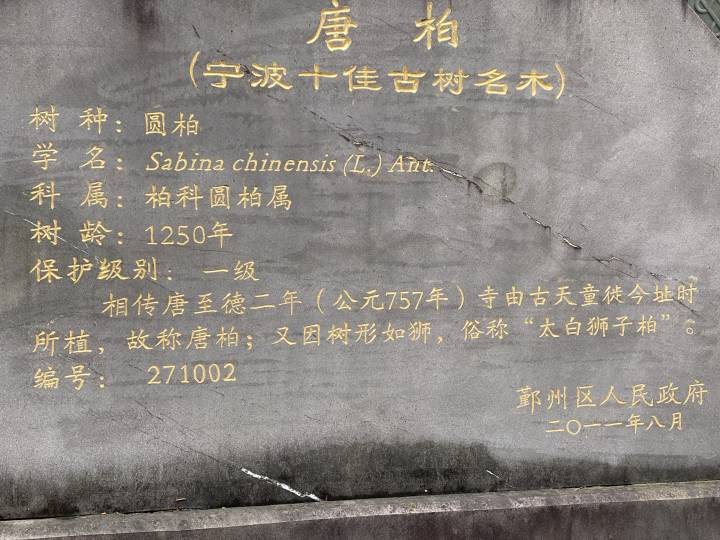 唐 柏
(宁波十佳古树名木)
树 种：圆柏
学 名：Sabina chinensis (L.) Ant.
科 属：柏科圆柏属
树 龄：1250年
保护级别：一级
相传唐至德二年（公元757年）寺由古天童徙今址时
所植，故称唐柏；又因树形如狮，俗称“太白狮子柏”。
编号：271002
鄞州区人民政府
二〇一一年八月